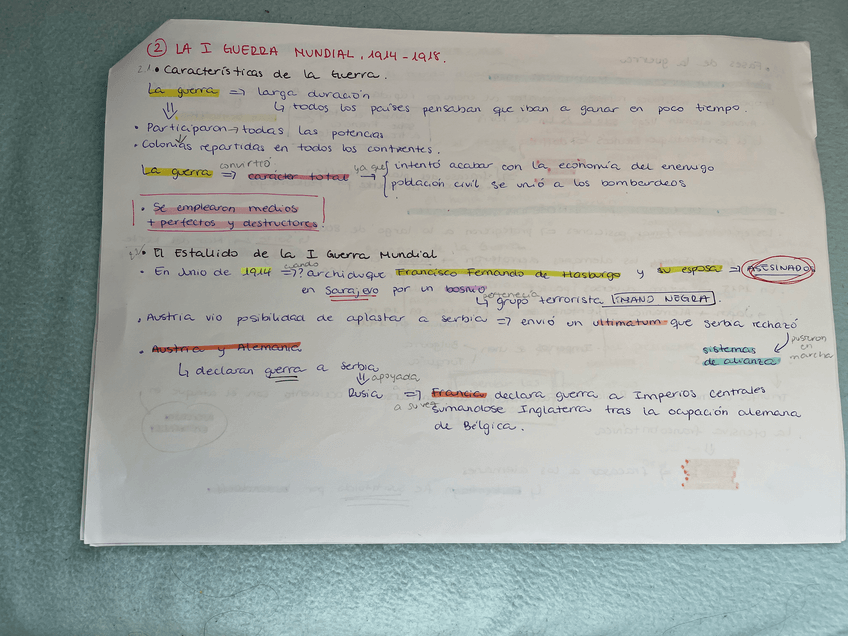 ② LA I GUERRA MUNDIAL, 1914-1918.
2.1 • Características de la Guerra.
La guerra => larga duración
↳ todos los países pensaban que iban a ganar en poco tiempo.
• Participaron → todas las potencias
• Colonias repartidas en todos los continentes.
La guerra => convirtió carácter total → ya que { intentó acabar con la economía del enemigo
población civil se unió a los bombardeos
• Se emplearon medios
+ perfectos y destructores.
• El Estallido de la I Guerra Mundial
• En Junio de 1914 => cuando archiduque Francisco Fernando de Hasburgo y su esposa → ASESINADOS
en Sarajevo por un bosnio
↳ pertenecía grupo terrorista "MANO NEGRA".
• Austria vio posibilidad de aplastar a Serbia => envió un ultimatum que serbia rechazó
pusieron en marcha
sistemas
de alianza
• Austria y Alemania
↳ declaran gerra a Serbia
⇓ apoyada
Rusia => a su vez Francia declara guerra a Imperios centrales
sumandose Inglaterra tras la ocupación alemana
de Bélgica.